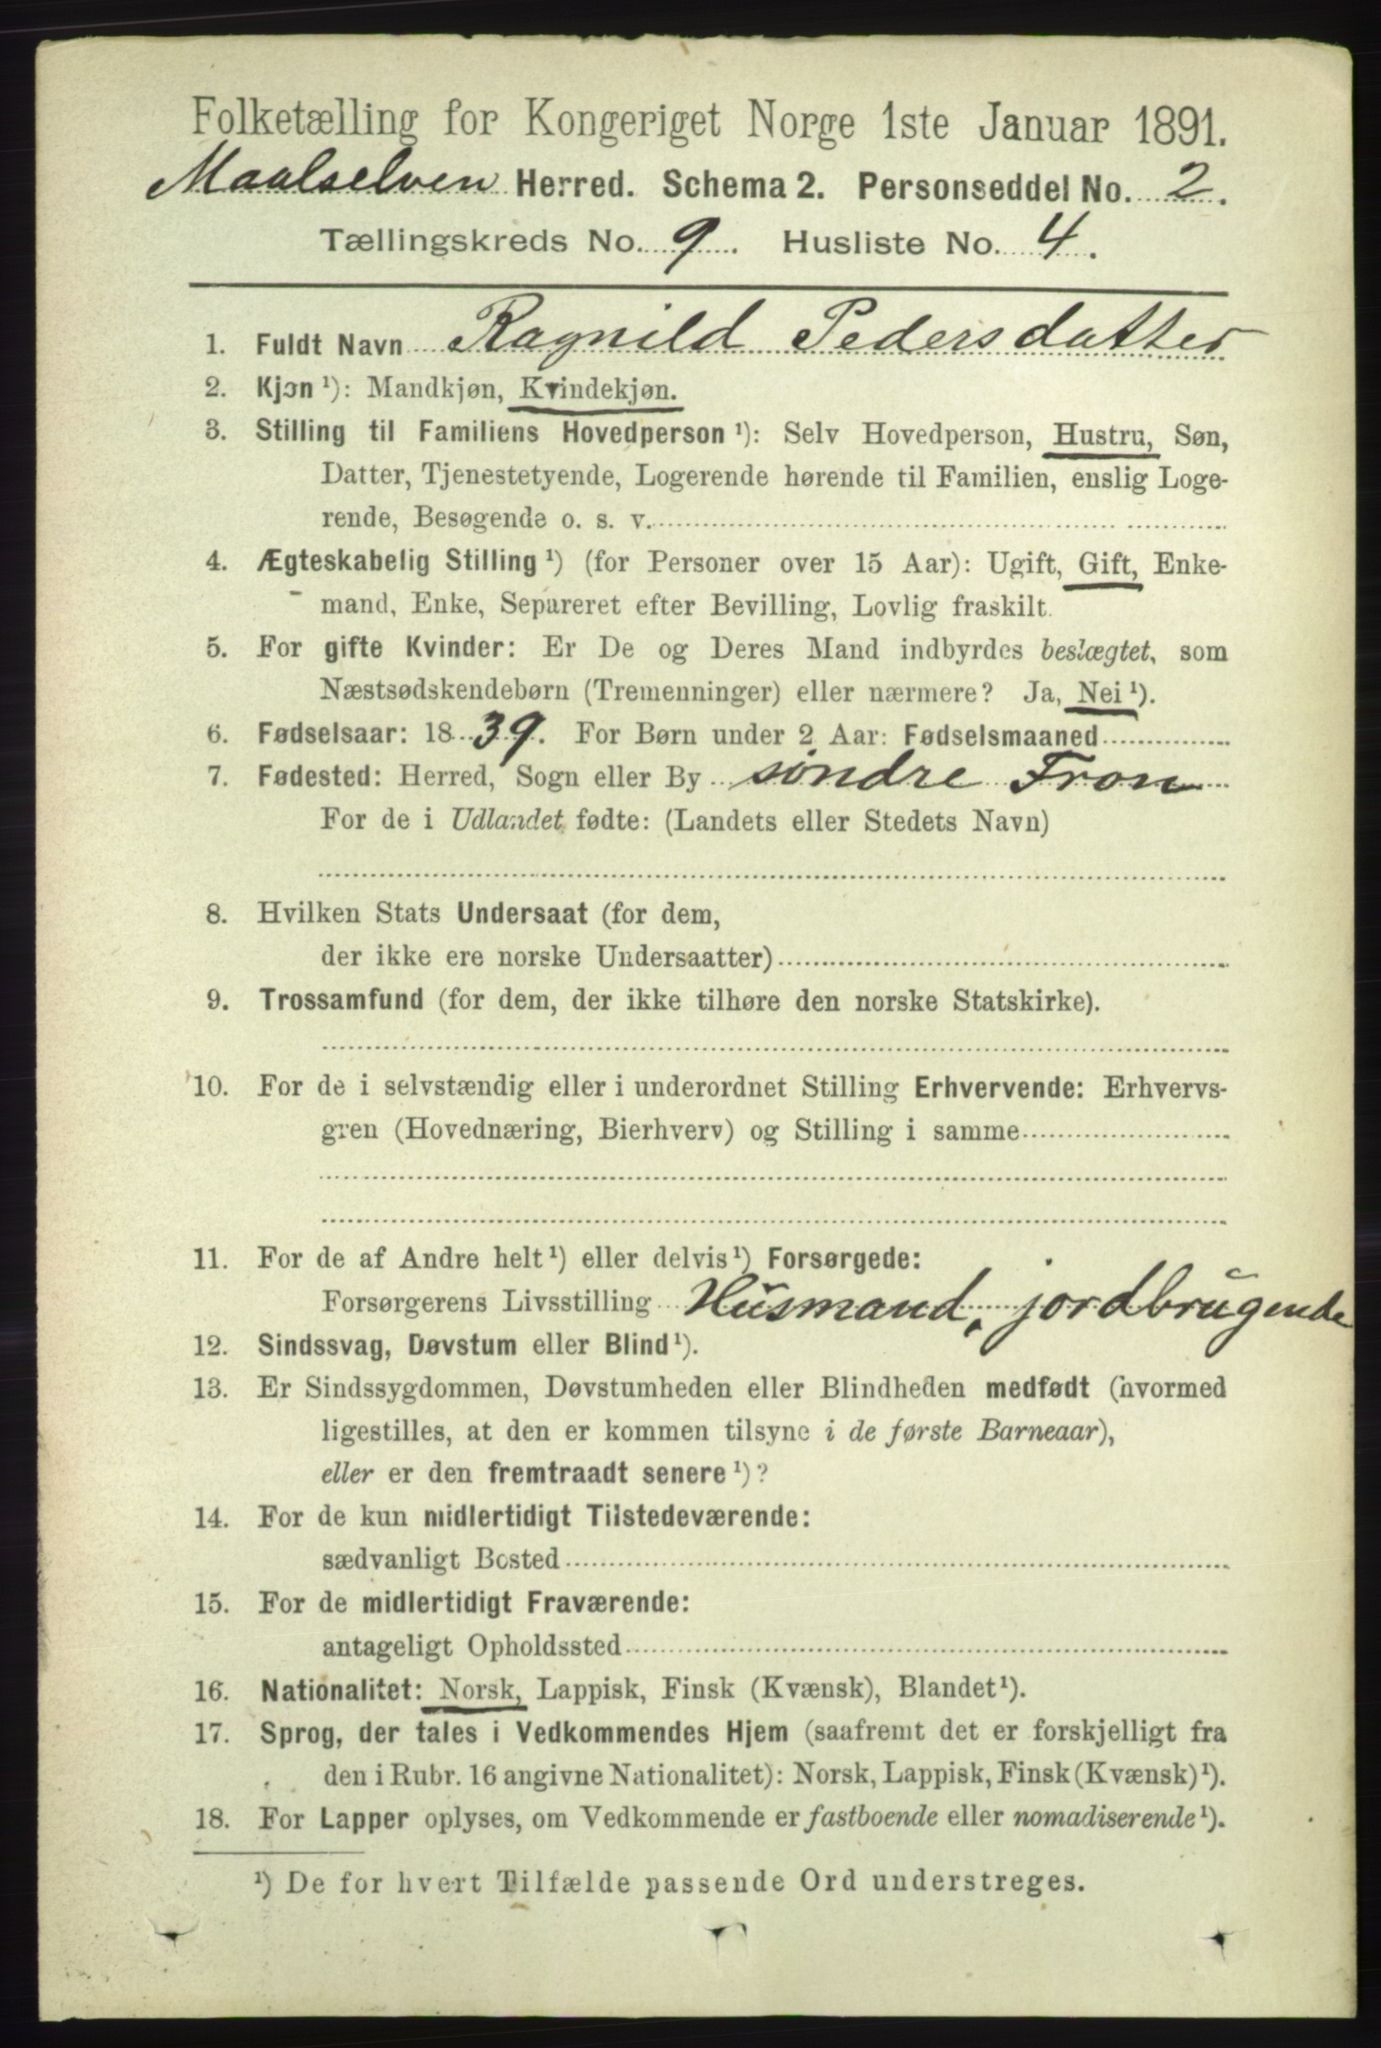 Folketælling for Kongeriget Norge 1ste Januar 1891.
Maalselven Herred. Schema 2. Personseddel No. 2.
Tællingskreds No. 9. Husliste No. 4.
1. Fuldt Navn Ragnild Pedersdatter
2. Kjøn ¹): Mandkjøn, Kvindekjøn.
3. Stilling til Familiens Hovedperson ¹): Selv Hovedperson, Hustru, Søn,
Datter, Tjenestetyende, Logerende hørende til Familien, enslig Loge-
rende, Besøgende o. s. v.
4. Ægteskabelig Stilling ¹) (for Personer over 15 Aar): Ugift, Gift, Enke-
mand, Enke, Separeret efter Bevilling, Lovlig fraskilt.
5. For gifte Kvinder: Er De og Deres Mand indbyrdes beslægtet, som
Næstsødskendebørn (Tremenninger) eller nærmere? Ja, Nei ¹).
6. Fødselsaar: 1839. For Børn under 2 Aar: Fødselsmaaned
7. Fødested: Herred, Sogn eller By søndre Fron
For de i Udlandet fødte: (Landets eller Stedets Navn)
8. Hvilken Stats Undersaat (for dem,
der ikke ere norske Undersaatter)
9. Trossamfund (for dem, der ikke tilhøre den norske Statskirke).
10. For de i selvstændig eller i underordnet Stilling Erhvervende: Erhvervs-
gren (Hovednæring, Bierhverv) og Stilling i samme
11. For de af Andre helt ¹) eller delvis ¹) Forsørgede:
Forsørgerens Livsstilling Husmand, jordbrugende
12. Sindssvag, Døvstum eller Blind ¹).
13. Er Sindssygdommen, Døvstumheden eller Blindheden medfødt (hvormed
ligestilles, at den er kommen tilsyne i de første Barneaar),
eller er den fremtraadt senere ¹)?
14. For de kun midlertidigt Tilstedeværende:
sædvanligt Bosted
15. For de midlertidigt Fraværende:
antageligt Opholdssted
16. Nationalitet: Norsk, Lappisk, Finsk (Kvænsk), Blandet ¹).
17. Sprog, der tales i Vedkommendes Hjem (saafremt det er forskjelligt fra
den i Rubr. 16 angivne Nationalitet): Norsk, Lappisk, Finsk (Kvænsk) ¹).
18. For Lapper oplyses, om Vedkommende er fastboende eller nomadiserende ¹).
¹) De for hvert Tilfælde passende Ord understreges.